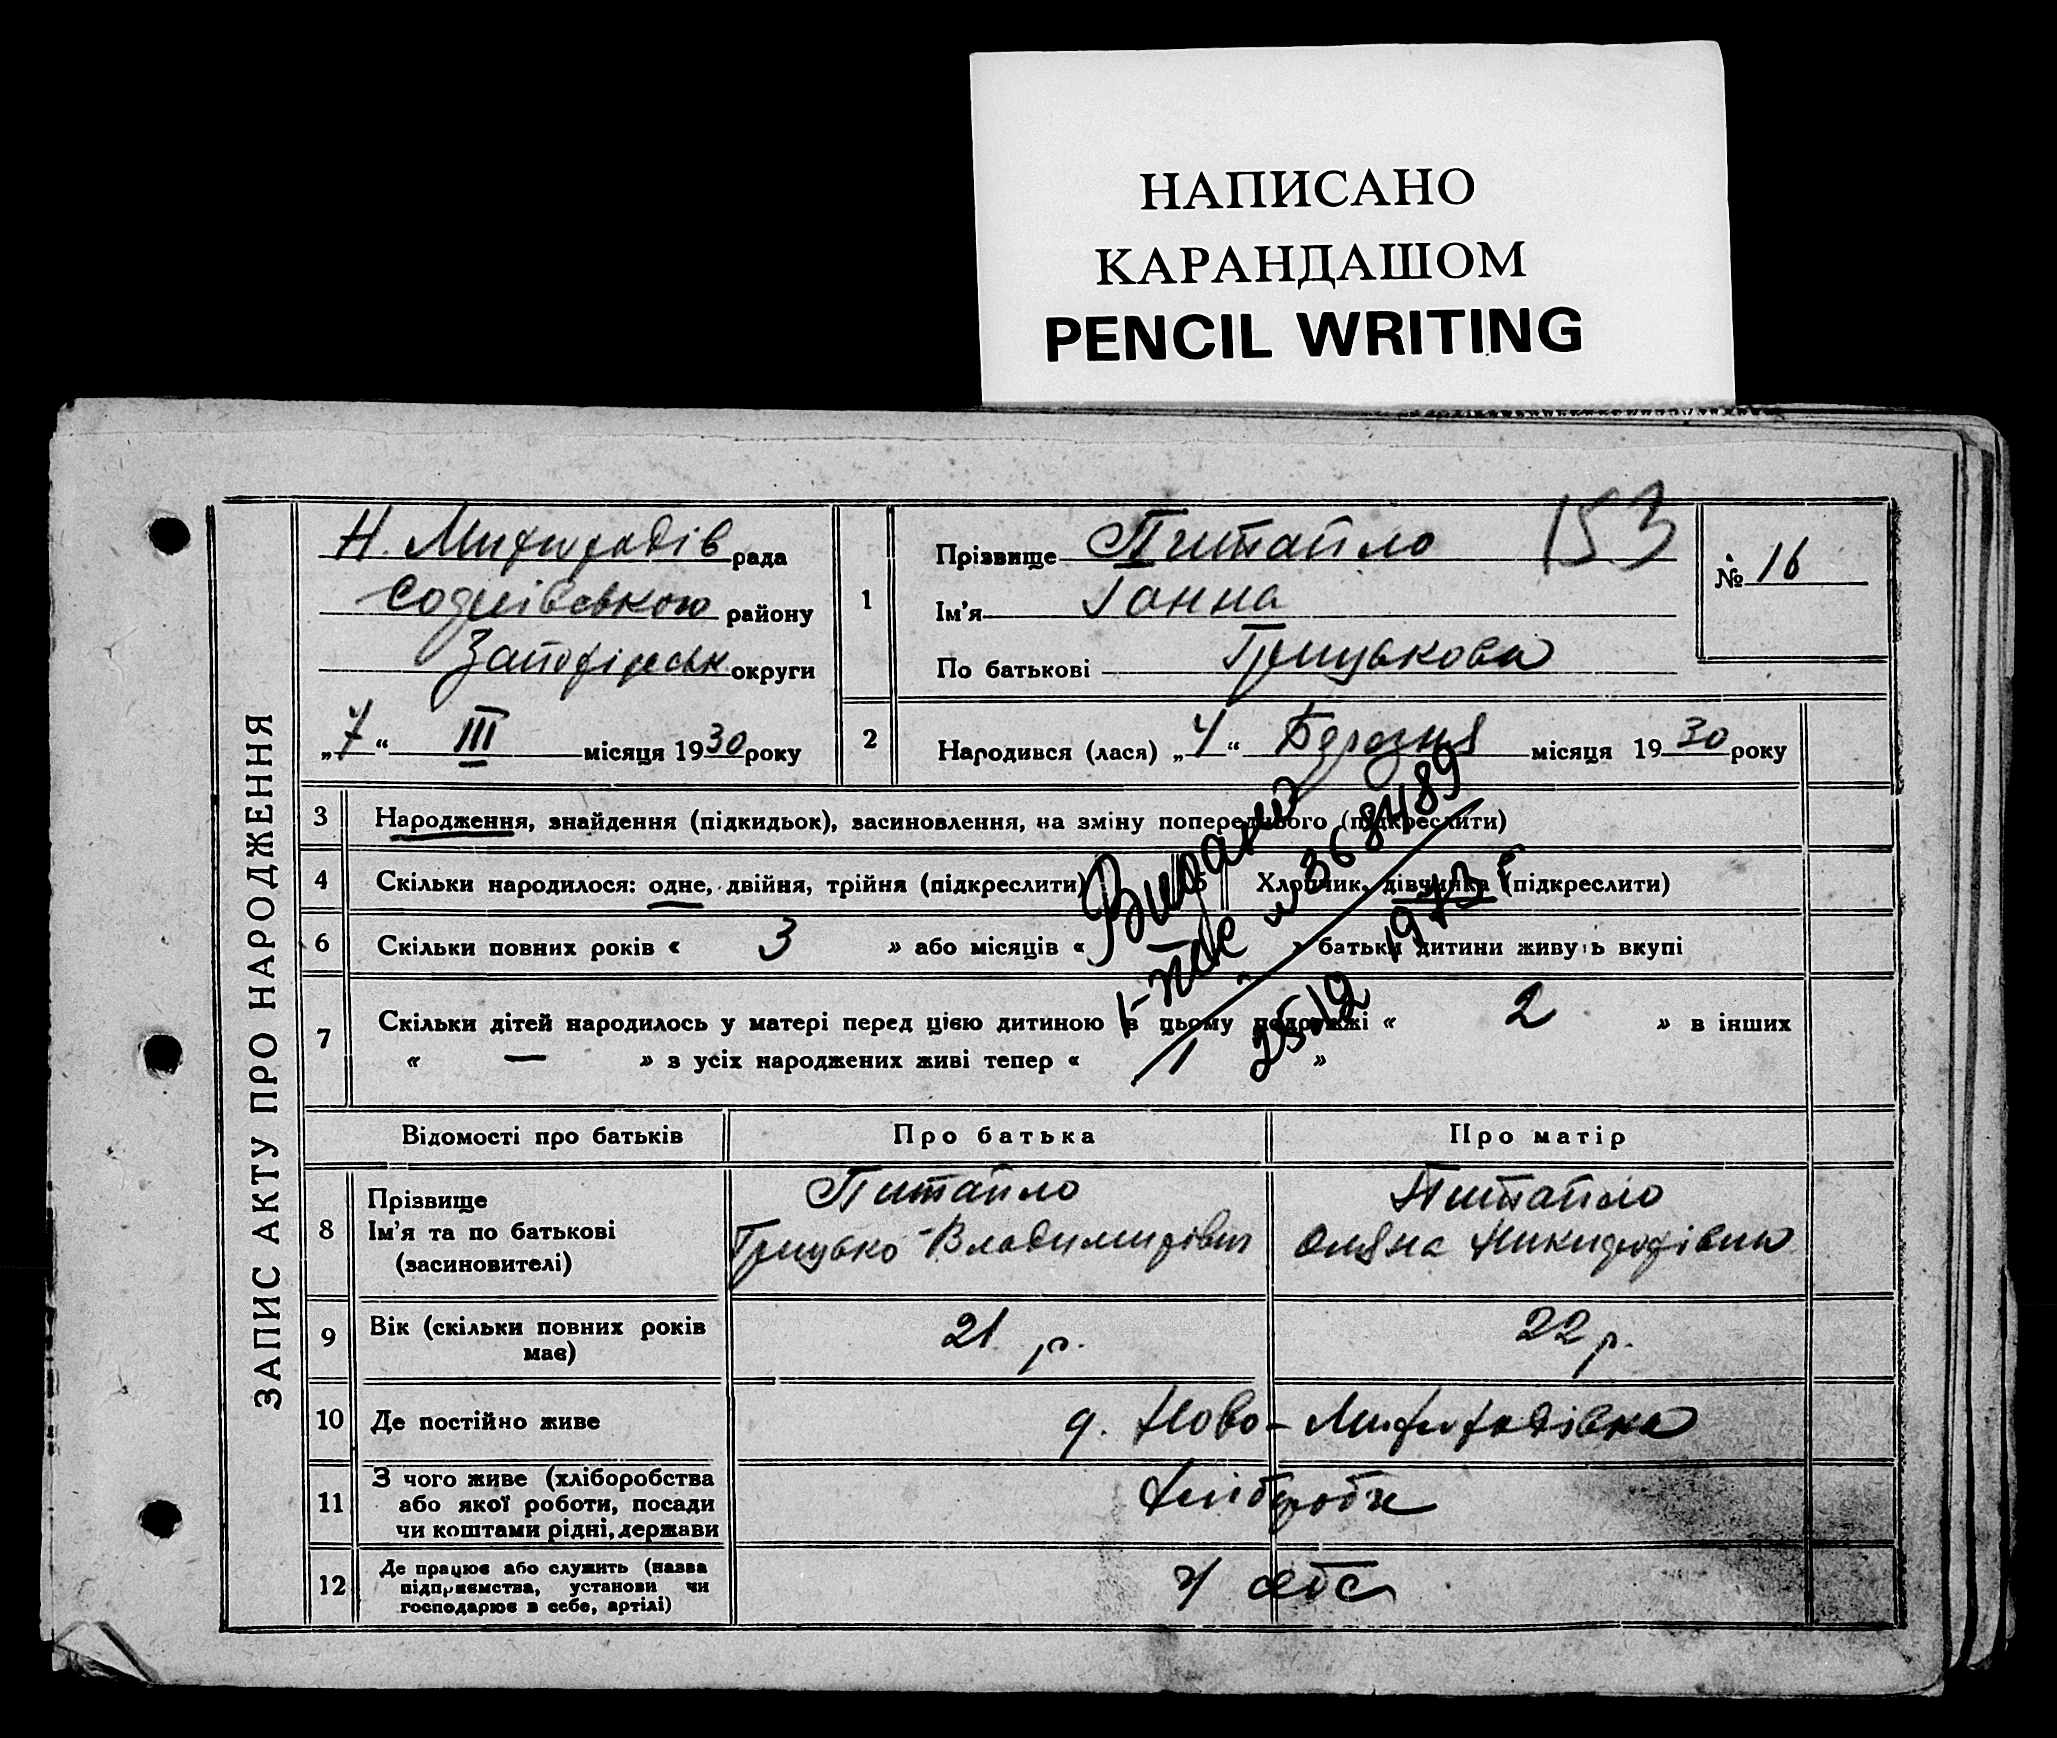 НАПИСАНО
КАРАНДАШОМ
PENCIL WRITING
ЗАПИС АКТУ ПРО НАРОДЖЕННЯ
Н. Миргородів рада
району
Запоріжськ округи
„7“ III місяця 1930 року
1
Прізвище Питайло
153
Ім'я Ганна
По батькові Грицькова
№ 16
2
Народився (лася) „4“ Березня місяця 1930 року
3 Народження, знайдення (підкидьок), засиновлення, на зміну попереднього (підкреслити)
4 Скільки народилося: одне, двійня, трійня (підкреслити) 5 Хлопчик, дівчинка (підкреслити)
6 Скільки повних років « 3 » або місяців « » батьки дитини живуть вкупі
7 Скільки дітей народилось у матері перед цією дитиною в цьому подружжі « 2 » в інших
« — » з усіх народжених живі тепер « 1 »
Видано
№ 3684489
25/2 1973 г
Відомості про батьків Про батька Про матір
8 Прізвище Питайло Питайло
Ім'я та по батькові Грицько Владимирівич Оляна Никифорівна
(засиновителі)
9 Вік (скільки повних років має) 21 р. 22 р.
10 Де постійно живе Ново-Миргородівка
11 З чого живе (хліборобства
або якої роботи, посади
чи коштами рідні, держави
Хлібороби
12 Де працює або служить (назва
підприємства, установи чи
господарює в себе, артілі)
У себе